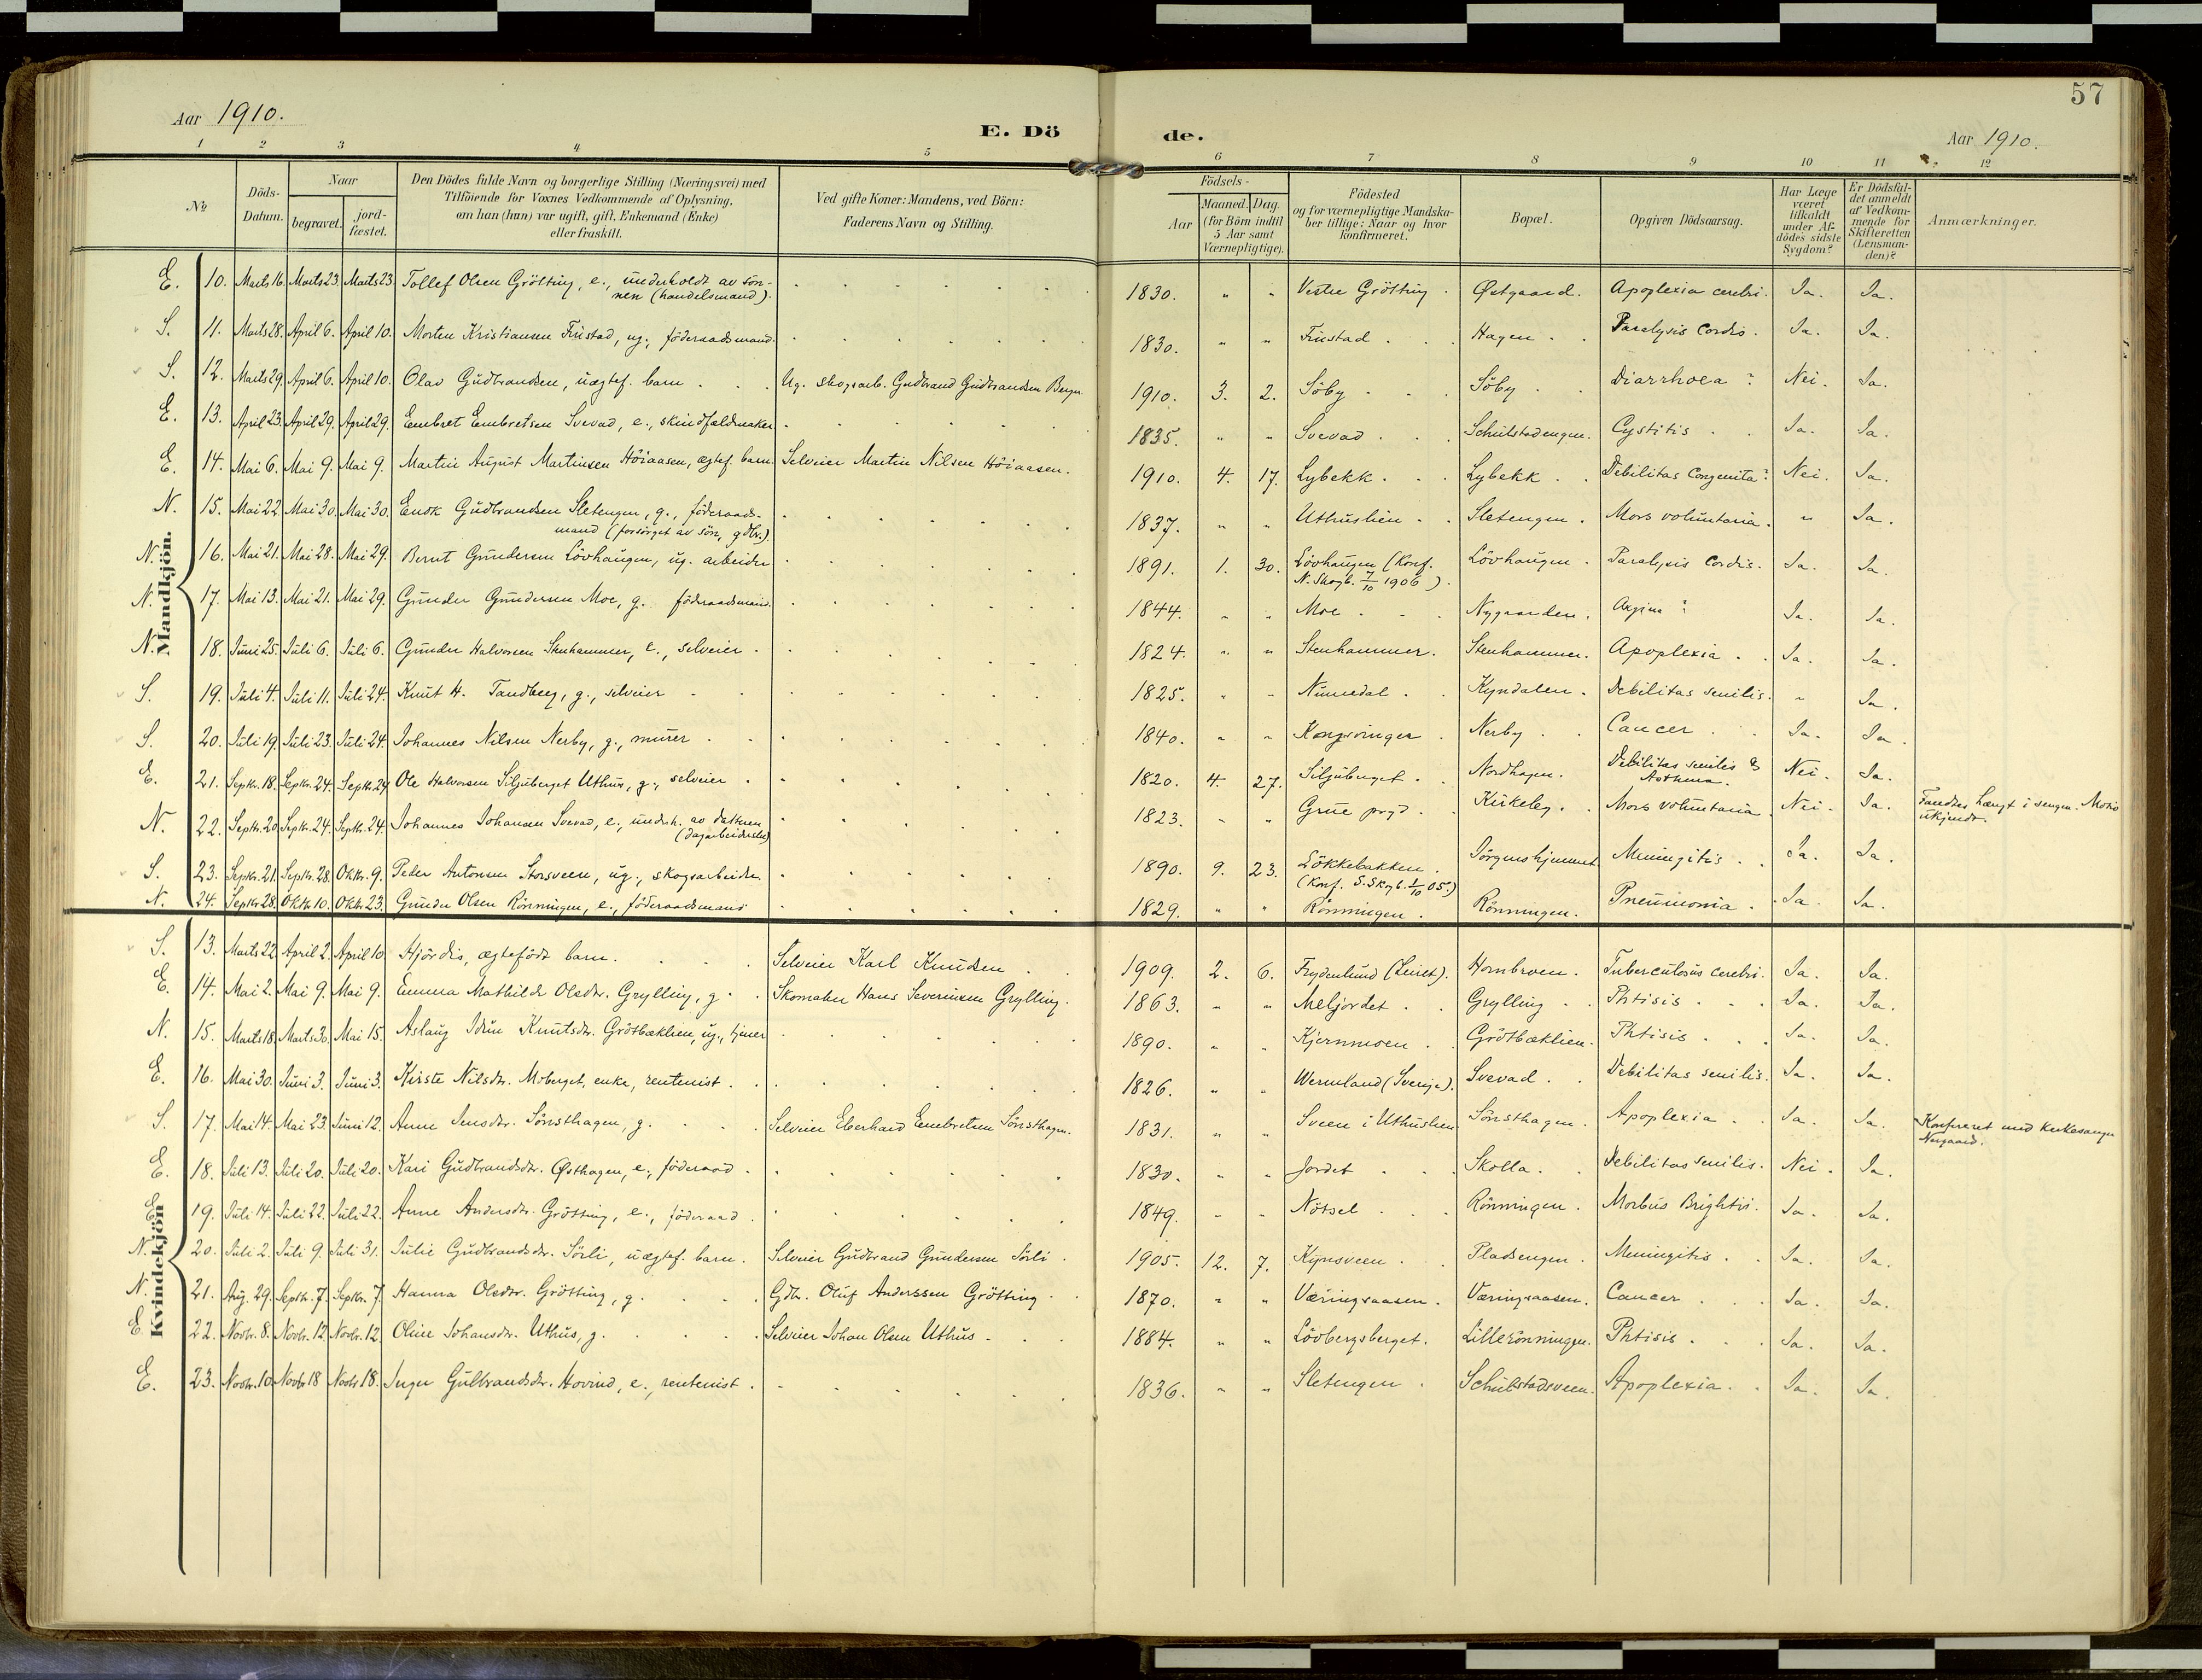 57
Aar 1910.
E. Dö
de.
Aar 1910.
1 2 3 4 5 6 7 8 9 10 11 12
No
Döds-Datum.
Naar
begravet.
jord-fæstet.
Den Dödes fulde Navn og borgerlige Stilling (Næringsvei) med
Tilföiende for Voxnes Vedkommende af Oplysning,
om han (hun) var ugift, gift, Enkemand (Enke)
eller fraskilt.
Ved gifte Koner: Mandens, ved Börn:
Faderens Navn og Stilling.
Födsels-
Aar
Maaned. Dag.
(for Börn indtil
5 Aar samt
Værnepligtige).
Födested
og for værnepligtige Mandska-
ber tillige: Naar og hvor
konfirmeret.
Bopæl.
Opgiven Dödsaarsag.
Har Læge
været
tilkaldt
under Af-
dödes sidste
Sygdom?
Er Dödsfal-
det anmeldt
af Vedkom-
mende for
Skifteretten
(Lensman-
den)?
Anmærkninger.
Mandkjön.
E. 10. Marts 16. Marts 23. Marts 23. Tollef Olsen Grötting, e., underholdt av søn-
nen (handelsmand). 1830. " " Vestre Grötting. Østgaard. Apoplexia cerebri. Ja. Ja.
S. 11. Marts 28. April 6. April 10. Morten Kristiansen Frustad, ug., föderaadsmand. 1830. " " Frustad. Hagen. Paralysis Cordis. Ja. Ja.
S. 12. Marts 29. April 6. April 10. Olav Gudbrandsen, uægtef. barn. Ug. skogsarb. Gudbrand Gudbrandsen Berger 1910. 3. 2. Söby. Söby. Diarrhoea? Nei. Ja.
E. 13. April 23. April 29. April 29. Embret Embretsen Svevad, e., skindfældmaker 1835. " " Svevad. Schulstadengen. Cystitis. Ja. Ja.
E. 14. Mai 6. Mai 9. Mai 9. Martin August Martinsen Höiaasen, ægtef. barn. Selveier Martin Nilsen Höiaasen. 1910. 4. 17. Lybekk. Lybekk. Debilitas Congenita? Nei. Ja.
N. 15. Mai 22. Mai 30. Mai 30. Enok Gudbrandsen Sletengen, g., föderaads-
mand (forsörget av sön, gdbr.) 1837. " " Uthuslien. Sletengen. Mors voluntaria. " Ja.
N. 16. Mai 21. Mai 28. Mai 29. Bernt Gundersen Lövhaugen, ug. arbeider 1891. 1. 30. Lövhaugen (Konf.
N. Skogb. 7/10 1906). Lövhaugen. Paralysis Cordis. Ja. Ja.
N. 17. Mai 13. Mai 21. Mai 29. Gunder Gundersen Moe, g. föderaadsmand. 1844. " " Moe. Nygaarden. Angina? Ja. Ja.
N. 18. Juni 25. Juli 6. Juli 6. Gunder Halvorsen Stenhammer, e., selveier. 1824. " " Stenhammer. Stenhammer. Apoplexia. Ja. Ja.
S. 19. Juli 4. Juli 11. Juli 24. Knut H. Tandberg, g., selveier 1825. " " Numedal. Kyndalen. Debilitas senilis. " Ja.
S. 20. Juli 19. Juli 23. Juli 24. Johannes Nilsen Nerby, g., murer 1840. " " Kongsvinger. Nerby. Cancer. Ja. Ja.
E. 21. Septbr. 18. Septbr. 24. Septbr. 24 Ole Halvorsen Siljuberget Uthus, g., selveier. 1820. 4. 27. Siljuberget. Nordhagen. Debilitas senilis &
Asthma. Nei. Ja.
N. 22. Septbr. 20 Septbr. 24. Septbr. 24. Johannes Johansen Svevad, e., underh. av datteren
(dagarbeiderske) 1823. " " Grue prgd. Kirkeby. Mors voluntaria. Nei. Ja. Fandtes hængt i sengen. Motiv
ukjendt.
S. 23. Septbr. 21. Septbr. 28. Oktbr. 9. Peder Antonsen Storsveen, ug., skogsarbeider 1890. 9. 23. Lökkebakken.
(Konf. S. Skogb. 1/10 05.) Jörgenshjemmet Meningitis. Ja. Ja.
N. 24. Septbr 28. Oktbr 10. Oktbr 23. Gunder Olsen Rönningen, e., föderaadsmand 1829. " " Rönningen. Rönningen. Pneumonia. Ja. Ja.
Kvindekjön
S. 13. Marts 22. April 2. April 10 Hjördis, ægtefödt barn. Selveier Karl Knudsen 1909. 2. 6. Frydenlund (Leiret). Hornbroen. Tuberculosus cerebri. Ja. Ja.
E. 14. Mai 2. Mai 9. Mai 9. Emma Mathilde Olsdtr. Grylling, g. Skomaker Hans Severinsen Grylling. 1863. " " Meljordet. Grylling. Phtisis. Ja. Ja.
N. 15. Marts 18. Marts 30. Mai 15. Aslaug Idun Knutsdtr. Grötbæklien, ug., tjener 1890. " " Kjernmoen. Grötbæklien. Phtisis. Ja. Ja.
E. 16. Mai 30. Juni 3. Juni 3. Kirste Nilsdtr. Moberget, enke, rentenist. 1826. " " Wermland (Sverige). Svevad. Debilitas senilis. Ja. Ja.
S. 17. Mai 14. Mai 23. Juni 12. Anne Jensdtr. Sönsthagen, g. Selveier Eberhard Embretsen Sönsthagen. 1831. " " Sveen i Uthuslien Sönsthagen. Apoplexia. Ja. Ja. Konfereret med kirkesanger
Nergaard.
E. 18. Juli 13. Juli 20. Juli 20. Kari Gudbrandsdtr. Østhagen, e., föderaad. 1830. " " Jordet. Skolla. Debilitas senilis. Nei. Ja.
E. 19. Juli 14. Juli 22. Juli 22. Anne Andersdtr. Grötting, e., föderaad. 1849. " " Nötsel. Rönningen. Morbus Brightii. Ja. Ja.
N. 20. Juli 2. Juli 9. Juli 31. Julie Gudbrandsdtr. Sörli, uægtef. barn. Selveier Gudbrand Gundersen Sörli. 1905. 12. 7. Kynsveen. Pladsengen. Meningitis. Ja. Ja.
N. 21. Aug. 29. Septbr. 7. Septbr. 7. Hanna Olsdtr. Grötting, g. Gdbr. Oluf Anderssen Grötting. 1870. " " Væringsaasen. Væringsaasen. Cancer. Ja. Ja.
E. 22. Novbr. 8. Novbr. 12 Novbr. 12. Oline Johansdtr. Uthus, g. Selveier Johan Olsen Uthus. 1884. " " Lövbergsberget. Lillerönningen. Phtisis. Ja. Ja.
E. 23. Novbr. 10 Novbr 18 Novbr 18. Inger Gulbrandsdtr. Hovind, e., rentenist. 1836. " " Sletengen. Schulstadsveen. Apoplexia. Ja. Ja.